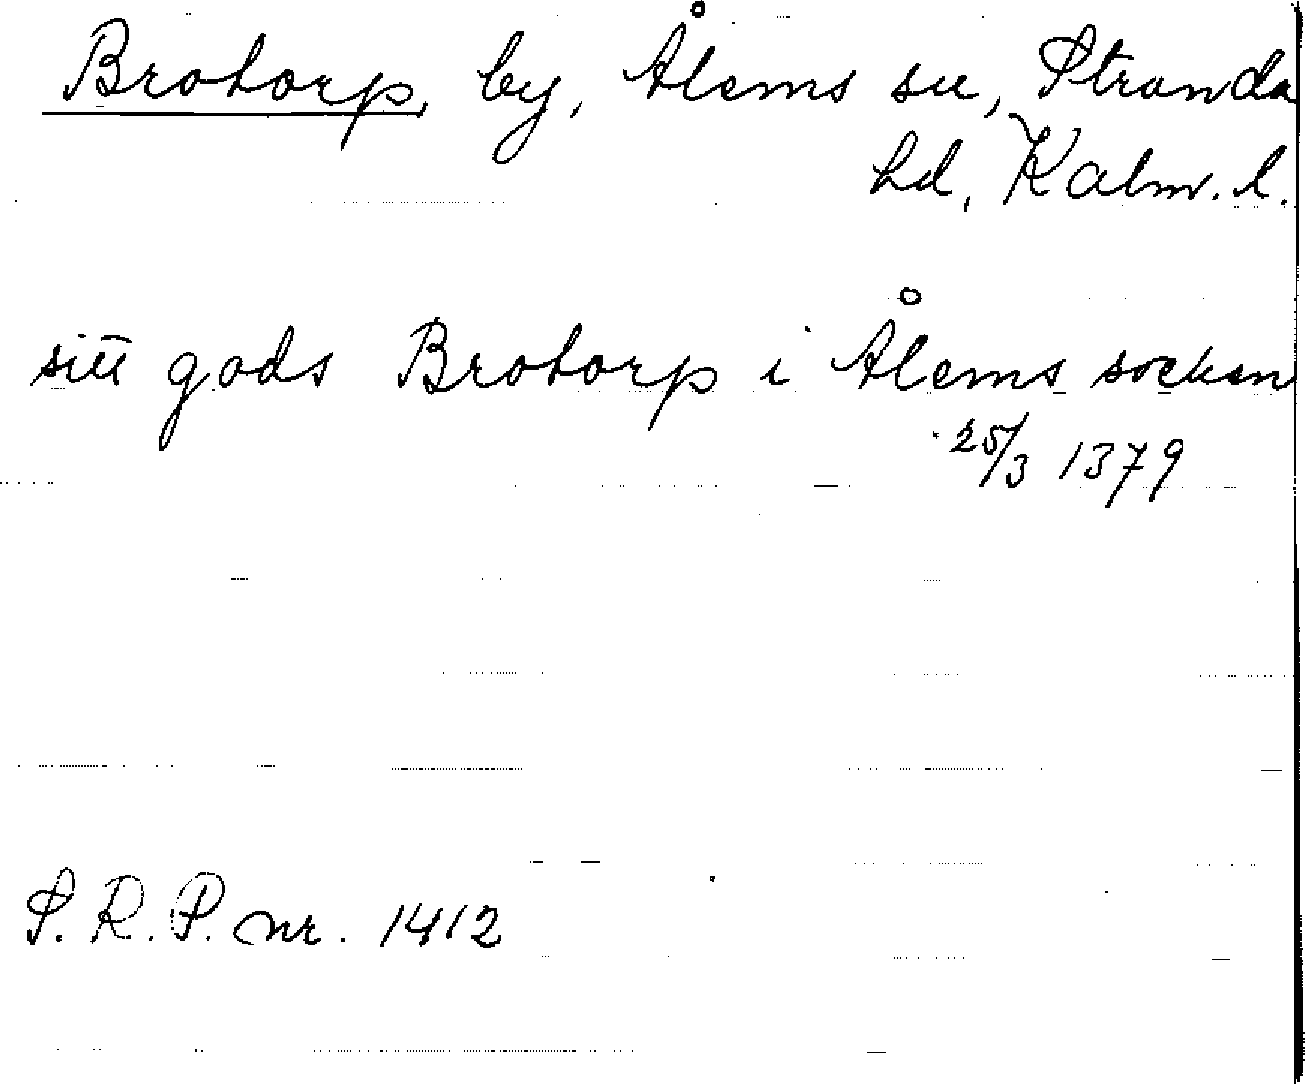 Brotorp, by, Ålems sn, Stranda
hd, Kalm. l.
sitt gods Brotorp i Ålems socken
25/3 1379
S. R. P. nr. 1412